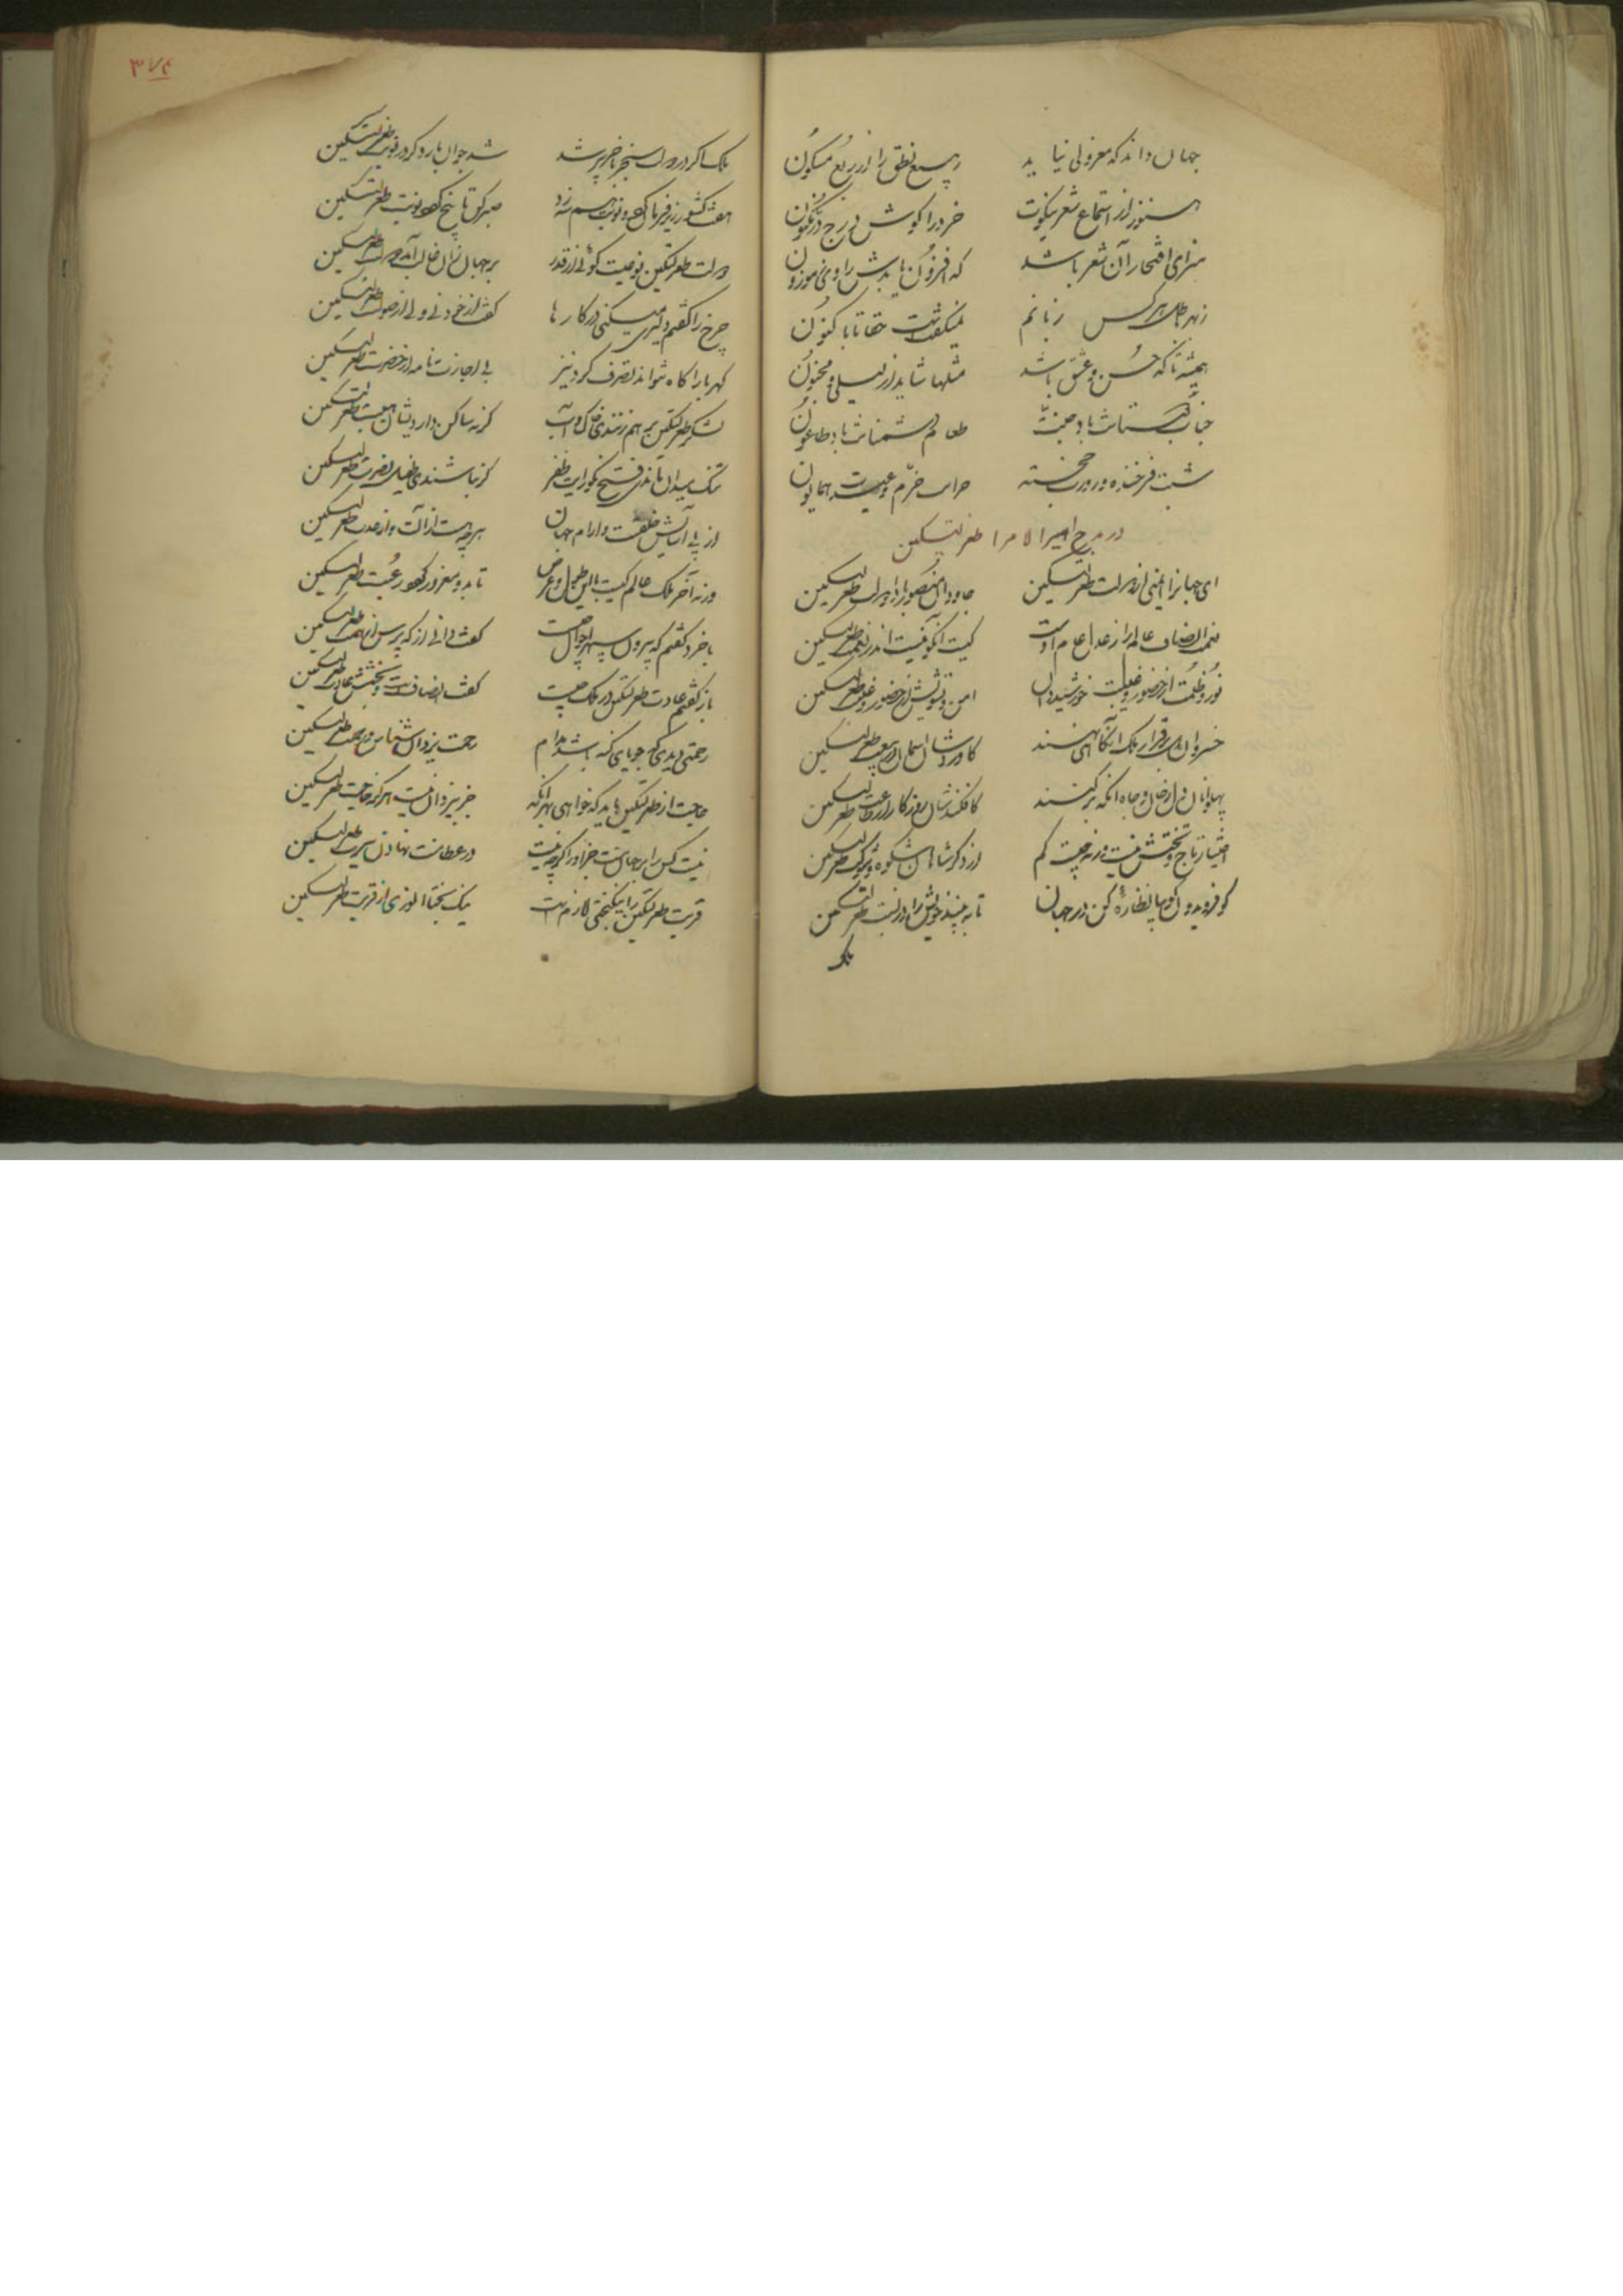 جهان داند که معزولی نیاید ربیع نطق را از ربع مسکون
هنوز از استماع شعر نیکوت خرد را گوش درج در مکنون
سزای افتخار آن شعر باشد که افزون باشدش راوی موزون
زبهر نام هر کس زبانم نمیگفتست حقا تا باکنون
همیشه تا که حسن و عشق باشد مثلها شاید از لیلی و مجنون
جناب بوستانت باد جنت طعام دشمنانت باد طاعون
شبت فرخنده و روزت خجسته خزانت خرم و عیدت همایون
در مدح امیر الامرا طغرلتکین
ای جهانرا ایمنی از دولت طغرلتکین جاودان منصور بادا رایت طغرلتکین
نعمت انصاف عالم را ز عدل عام اوست کیست آنکو نیست اندر نعمت طغرلتکین
نور و ظلمت از حضور و غیبت خورشید دان امن و تشویش از حضور و غیبت طغرلتکین
خسروان برقرار ملک آنگاهی نهند کاورد شان آسمان در بیعت طغرلتکین
پهلوانان دل ز جان و جاه آنگه برکنند کافکندشان روزگار اندر طغرلتکین
اختیار تاج و تختش نیست ورنه چیست کم از دگر شاهان شکوه و شوکت طغرلتکین
کو فریدون گو بیا نظاره کن در جهان تا ببیند خویش را در نسبت طغرلتکین
ملک
۳۷۴
ملک اگر در دولت سنجر بآخر پیر شد شد جوان بار دگر در نوبت طغرلتکین
هفت کشور زیر فرمان کرد و نوبت هم سه زد صبر کن تا پنج گردد نوبت طغرلتکین
دولت طغرلتکین نوعیست گوئی از قدر بر جهان زان غالب آمد دولت طغرلتکین
چرخ را گفتم دلیری میکنی در کارها گفت از خود نی ولی از صولت طغرلتکین
کهربا را کاه نتواند تصرف کرد نیز بی اجازت نامه از حضرت طغرلتکین
لشکر طغرلتکین بر هم زنندی خاک و آب گرنه ساکن داردیشان هیبت طغرلتکین
تنگ میدان ماندی فتح نگو رایت ظفر گر نباشندی طفیل نصرت طغرلتکین
از پی آسایش خلقست و آرام جهان هرچه هست از آلت و از عدت طغرلتکین
ورنه آخر ملک عالم کیست با این طول و عرض تا بدو مغرور گردد رغبت طغرلتکین
با خرد گفتم که بیرون سپهر احوال چیست گفت دانی از که پرس از همت طغرلتکین
باز گفتم عادت طغرلتکین در ملک چیست گفت انصافست و بخشش عادت طغرلتکین
رحمتی دیدی که جویای گنه باشد مدام رحمت یزدان شناس و رحمت طغرلتکین
حاجت از طغرلتکین باید که خواهی بهر آنکه جز بیزدان نیست هرگز حاجت طغرلتکین
نیست کس را بر جهان منت جز او را گرچه نیست در عطا منت نهادن سیرت طغرلتکین
قربت طغرلتکین را نیکبختی لازم است نیک بختا انوری از قربت طغرلتکین